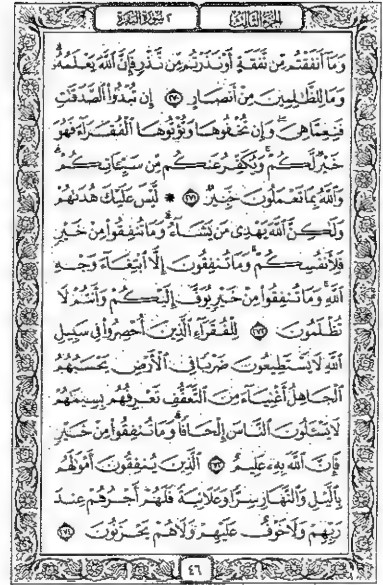 الجزء الثالث
٢ سورة البقرة
وَمَآ أَنفَقْتُم مِّن نَّفَقَةٍ أَوْ نَذَرْتُم مِّن نَّذْرٍ فَإِنَّ ٱللَّهَ يَعْلَمُهُۥ
وَمَا لِلظَّـٰلِمِينَ مِنْ أَنصَارٍ ٢٧٠ إِن تُبْدُوا۟ ٱلصَّدَقَـٰتِ
فَنِعِمَّا هِىَ وَإِن تُخْفُوهَا وَتُؤْتُوهَا ٱلْفُقَرَآءَ فَهُوَ
خَيْرٌ لَّكُمْ وَيُكَفِّرُ عَنكُم مِّن سَيِّـَٔاتِكُمْ
وَٱللَّهُ بِمَا تَعْمَلُونَ خَبِيرٌ ٢٧١ * لَّيْسَ عَلَيْكَ هُدَىٰهُمْ
وَلَـٰكِنَّ ٱللَّهَ يَهْدِى مَن يَشَآءُ وَمَا تُنفِقُوا۟ مِنْ خَيْرٍ
فَلِأَنفُسِكُمْ وَمَا تُنفِقُونَ إِلَّا ٱبْتِغَآءَ وَجْهِ
ٱللَّهِ وَمَا تُنفِقُوا۟ مِنْ خَيْرٍ يُوَفَّ إِلَيْكُمْ وَأَنتُمْ لَا
تُظْلَمُونَ ٢٧٢ لِلْفُقَرَآءِ ٱلَّذِينَ أُحْصِرُوا۟ فِى سَبِيلِ
ٱللَّهِ لَا يَسْتَطِيعُونَ ضَرْبًا فِى ٱلْأَرْضِ يَحْسَبُهُمُ
ٱلْجَاهِلُ أَغْنِيَآءَ مِنَ ٱلتَّعَفُّفِ تَعْرِفُهُم بِسِيمَـٰهُمْ
لَا يَسْـَٔلُونَ ٱلنَّاسَ إِلْحَافًا وَمَا تُنفِقُوا۟ مِنْ خَيْرٍ
فَإِنَّ ٱللَّهَ بِهِۦ عَلِيمٌ ٢٧٣ ٱلَّذِينَ يُنفِقُونَ أَمْوَٰلَهُم
بِٱلَّيْلِ وَٱلنَّهَارِ سِرًّا وَعَلَانِيَةً فَلَهُمْ أَجْرُهُمْ عِندَ
رَبِّهِمْ وَلَا خَوْفٌ عَلَيْهِمْ وَلَا هُمْ يَحْزَنُونَ ٢٧٤
٤٦